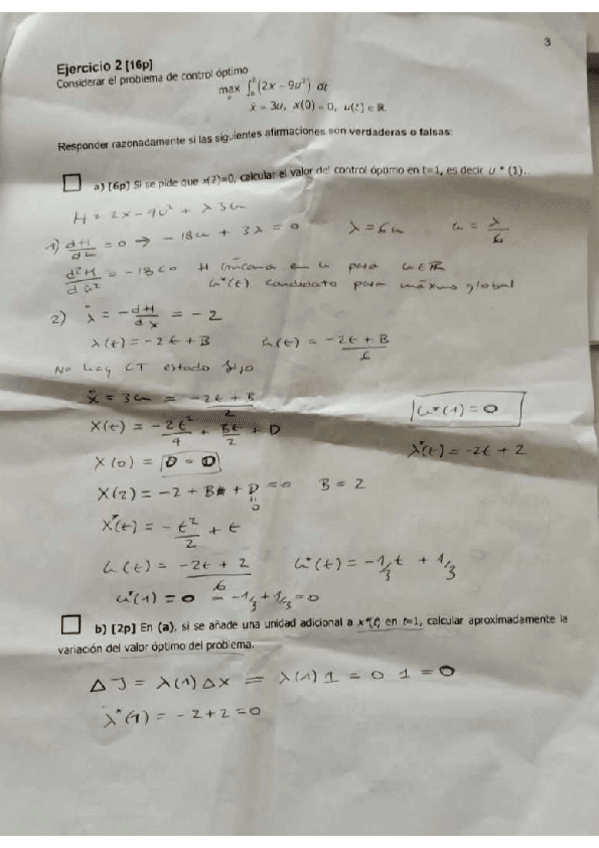 3
Ejercicio 2 [16p]
Considerar el problema de control óptimo
max ∫₀² (2x − 9u²) dt
u
ẋ = 3u, x(0)=0, u(t) ∈ ℝ.
Responder razonadamente si las siguientes afirmaciones son verdaderas o falsas:
a) [6p] Si se pide que x(2)=0, calcular el valor del control óptimo en t=1, es decir u * (1).
H = 2x − 9u² + λ 3u
1) dH/du = 0 → − 18u + 3λ = 0 λ = 6u u = λ/6
d²H/du² = − 18 < 0 H cóncava en u para u∈ℝ
u*(t) candidato para máximo global
2) λ̇ = − dH/dx = − 2
λ(t) = − 2t + B u(t) = (− 2t + B)/6
No hay CT estado fijo
ẋ = 3u = (− 2t + B)/2
|u*(1) = 0
X(t) = − 2t²/4 + Bt/2 + D
λ*(t) = −2t + 2
X(0) = D = 0
X(2) = − 2 + B + D = 0 B = 2
0
X*(t) = − t²/2 + t
u(t) = (− 2t + 2)/6 u*(t) = − 1/3 t + 1/3
u*(1) = 0 = − 1/3 + 1/3 = 0
b) [2p] En (a), si se añade una unidad adicional a x*(t) en t=1, calcular aproximadamente la
variación del valor óptimo del problema.
ΔJ = λ(1) Δx = λ(1) 1 = 0 1 = 0
λ*(1) = − 2 + 2 = 0